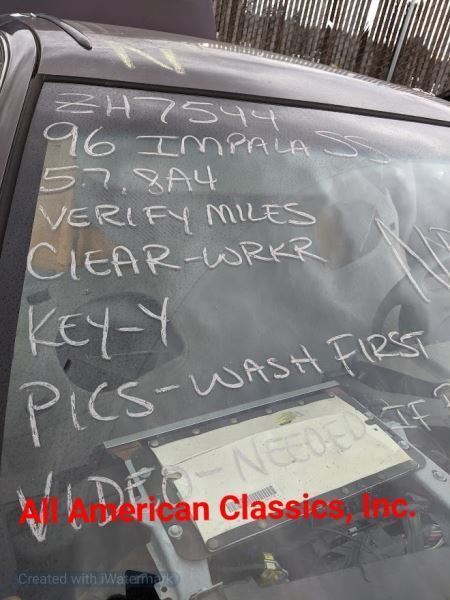 ZH7544
96 IMPALA SS
5.7.8A4
VERIFY MILES
CLEAR-WRKR
KEY-Y
PICS-WASH FIRST
VIDEO-NEEDED IF
All American Classics, Inc.
Created with iWatermark